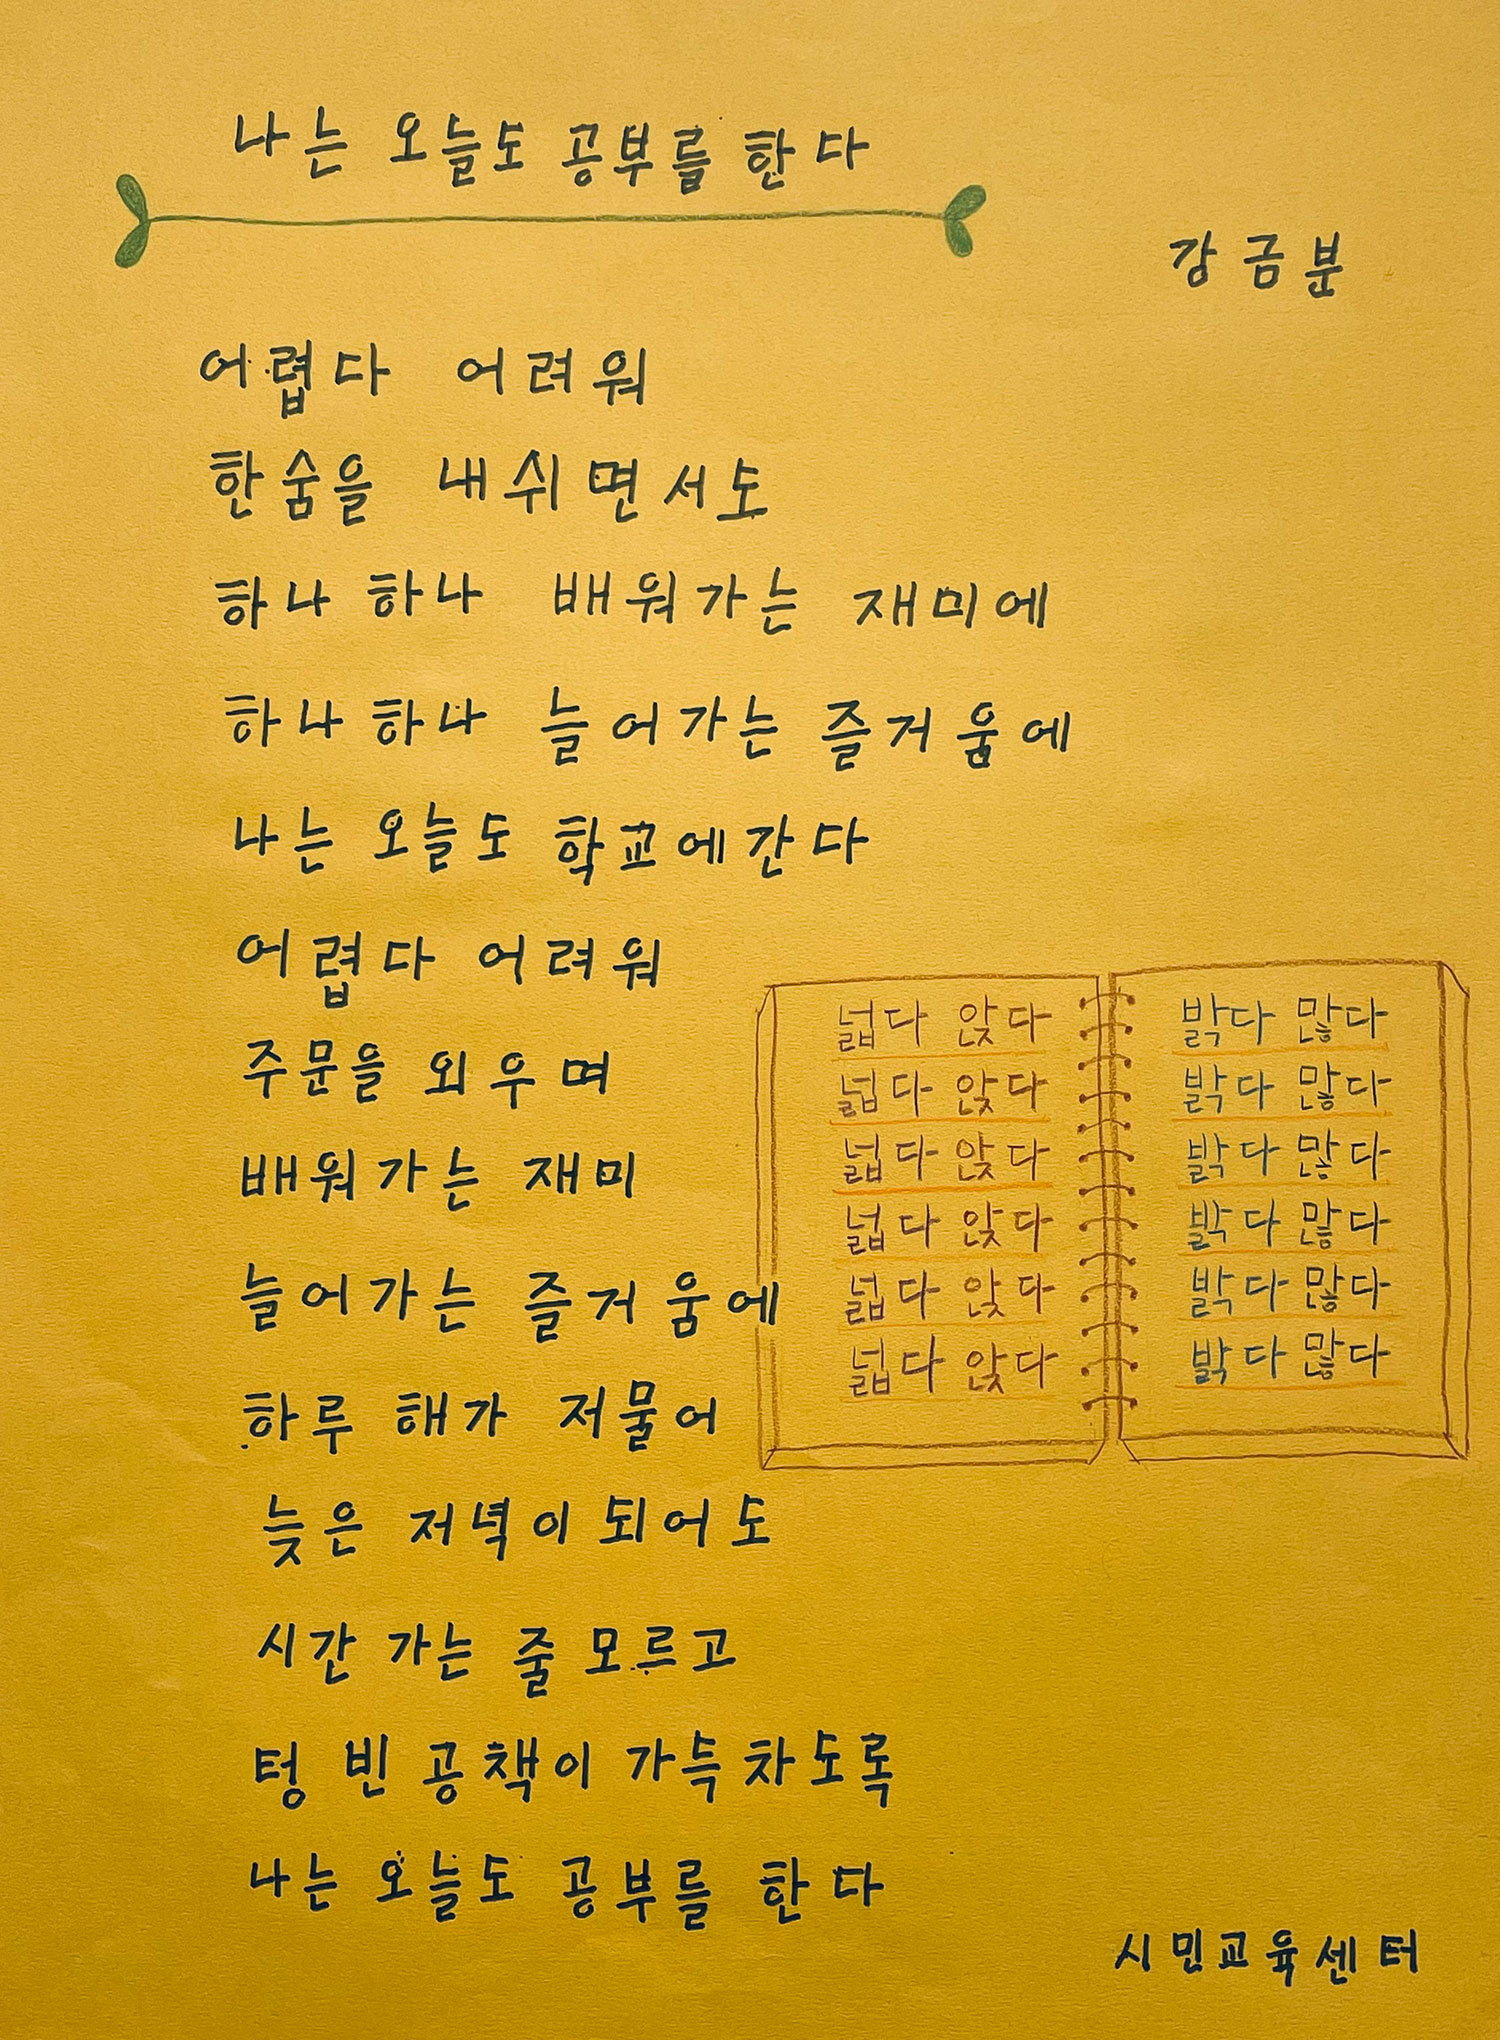 나는 오늘도 공부를 한다
강금분
어렵다 어려워
한숨을 내쉬면서도
하나하나 배워가는 재미에
하나하나 늘어가는 즐거움에
나는 오늘도 학교에간다
어렵다 어려워
주문을 외우며
배워가는 재미
늘어가는 즐거움에
하루 해가 저물어
늦은 저녁이 되어도
시간 가는 줄 모르고
텅 빈 공책이 가득차도록
나는 오늘도 공부를 한다
넓다 앉다
넓다 앉다
넓다 앉다
넓다 앉다
넓다 앉다
넓다 앉다
밝다 많다
밝다 많다
밝다 많다
밝다 많다
밝다 많다
밝다 많다
시민교육센터